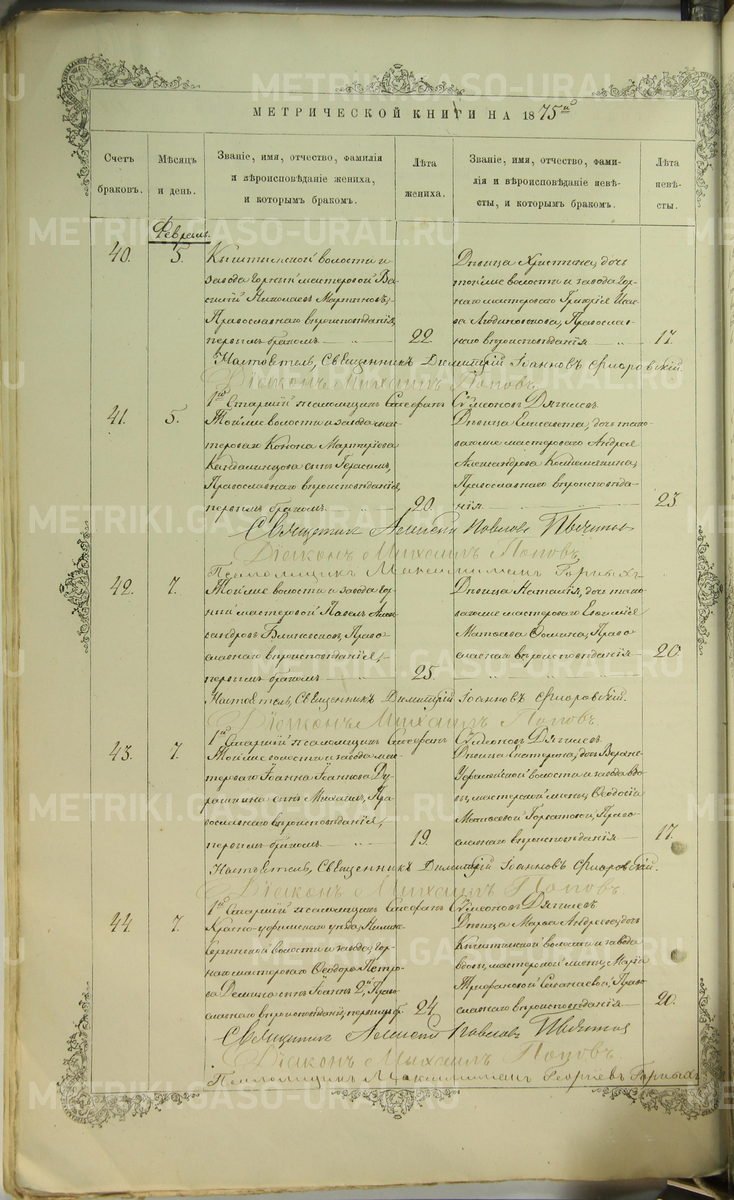 METRIKI.GASO-URAL.RU
МЕТРИЧЕСКОЙ КНИГИ НА 1875й
Счетъ браковъ.
Мѣсяцъ и день.
Званіе, имя, отчество, фамилія
и вѣроисповѣданіе жениха,
и которымъ бракомъ.
Лѣта жениха.
Званіе, имя, отчество, фами-
лія и вѣроисповѣданіе невѣ-
сты, и которымъ бракомъ.
Лѣта невѣ-сты.
Февраль.
40.
5.
Кыштымской волости и
завода горный мастеровой Ва-
силій Николаевъ Мартыновъ,
Православнаго вѣроисповѣданія,
первымъ бракомъ
22.
Дѣвица Христина, дочь
той же волости и завода гор-
наго мастероваго Иса-
Православ-
наго вѣроисповѣданія
17.
Настоятель, Священникъ Димитрій Іоанновъ Флоровскій.
Діаконъ Михаилъ Поповъ.
1й Старшій псаломщикъ Стефанъ Сѵмеоновъ Дягилевъ
41.
5.
Той же волости и завода мас-
тероваго Конона
сынъ Герасимъ,
Православнаго вѣроисповѣданія,
первымъ бракомъ
20.
Дѣвица Елисавета, дочь тако-
ваго же мастероваго Андрея
Александрова
Православнаго вѣроисповѣда-
нія
23.
Священникъ Алексей Павловъ
Діаконъ Михаилъ Поповъ.
Псаломщикъ Максимиліанъ Горныхъ
42.
7.
Той же волости и завода гор-
ный мастеровой Павелъ Алек-
сандровъ Блиновсковъ, Право-
славнаго вѣроисповѣданія,
первымъ бракомъ
25.
Дѣвица Наталія, дочь тако-
ваго же мастероваго Евфимія
Матвѣева Ѳомина, Право-
славнаго вѣроисповѣданія
20.
Настоятель, Священникъ Димитрій Іоанновъ Флоровскій.
Діаконъ Михаилъ Поповъ.
1й Старшій псаломщикъ Стефанъ Сѵмеоновъ Дягилевъ
43.
7.
Той же волости и завода мас-
тероваго Іоанна Іоаннова Ду-
сынъ Михаилъ, Пра-
вославнаго вѣроисповѣданія,
первымъ бракомъ
19.
Дѣвица Екатерина, дочь Верхне-
Уфалейской волости и завода вдо-
вы, мастерской жены, Ѳеодосіи
Моисеевой Горбатовой, Право-
славнаго вѣроисповѣданія
17.
Настоятель, Священникъ Димитрій Іоанновъ Флоровскій.
Діаконъ Михаилъ Поповъ.
1й Старшій псаломщикъ Стефанъ Сѵмеоновъ Дягилевъ
44.
7.
Красноуфимскаго уѣзда, Нижне-
Сергинской волости и завода, гор-
наго мастероваго Ѳеодора Петро-
ва Демина сынъ Іоаннъ 2й, Право-
славнаго вѣроисповѣданія, первымъ бр.
24.
Дѣвица Марѳа Андреева, дочь
Кыштымской волости и завода
вдовы, мастерской жены, Маріи
Трифановой Право-
славнаго вѣроисповѣданія
20.
Священникъ Алексей Павловъ
Діаконъ Михаилъ Поповъ.
Псаломщикъ Максимиліанъ Георгіевъ Горныхъ